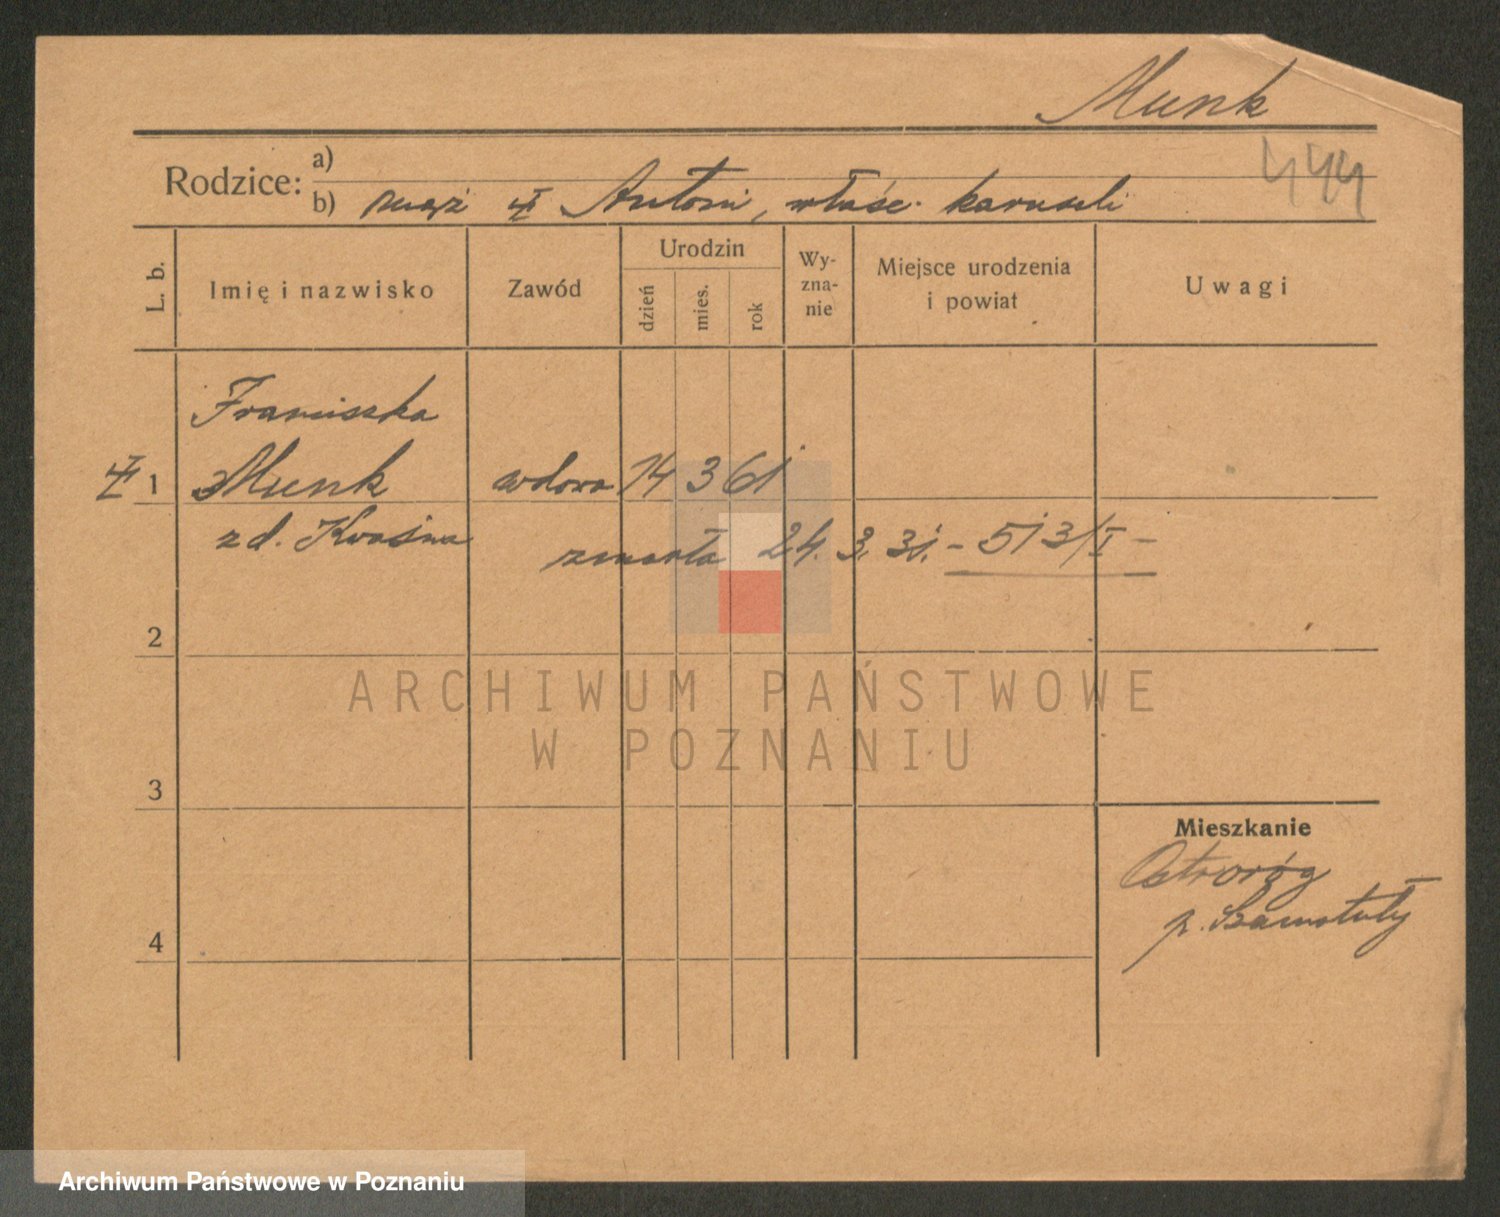 Munk
444
Rodzice: a)
b) mąż Antoni, właśc. karuzeli
L. b.
Imię i nazwisko
Zawód
Urodzin
dzień
mies.
rok
Wy-
zna-
nie
Miejsce urodzenia
i powiat
Uwagi
Franciszka
1 Munk wdowa 14 3 61
z d. Kwaśna
zmarła 24. 3. 31. - 513/I -
2
3
4
Mieszkanie
Ostroróg
p. Szamotuły
ARCHIWUM PAŃSTWOWE
W POZNANIU
Archiwum Państwowe w Poznaniu